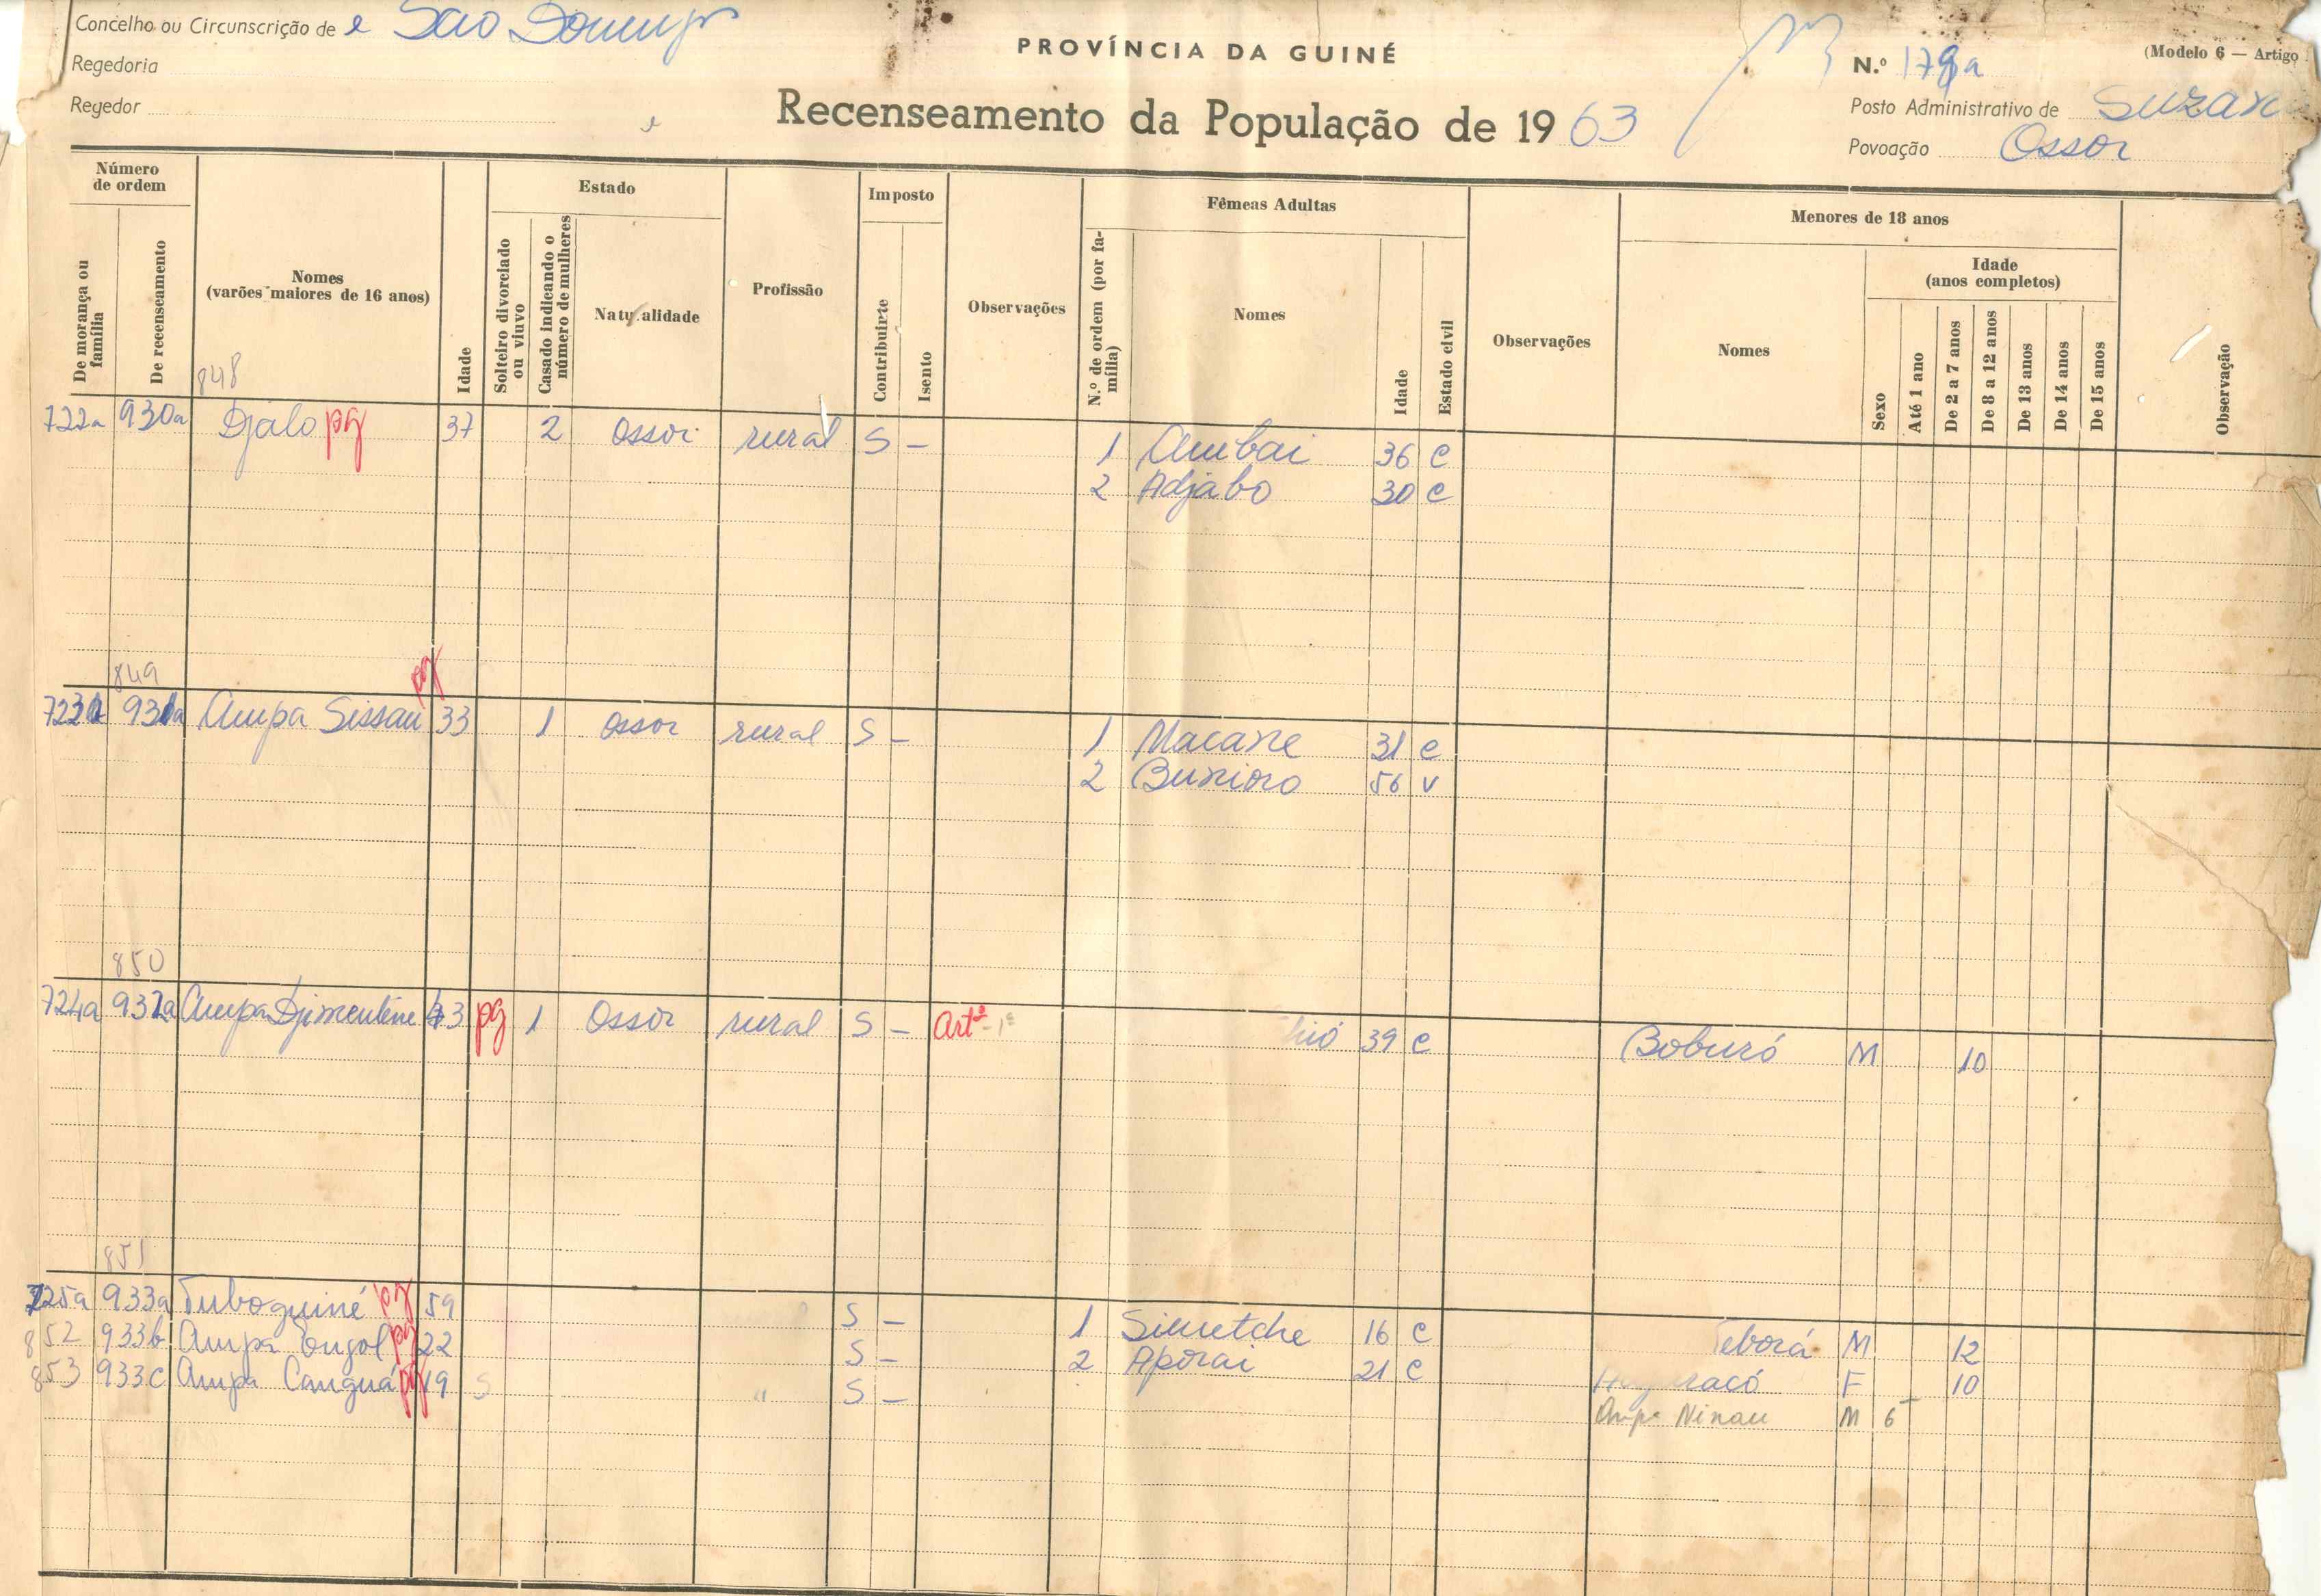 Concelho ou Circunscrição de São Doming
PROVÍNCIA DA GUINÉ
N.º 178a
(Modelo 6 — Artigo
Regedoria
Posto Administrativo de Suzan
Regedor
Recenseamento da População de 1963
Povoação Ossor
Número de ordem
De morança ou família
De recenseamento
Nomes (varões maiores de 16 anos)
Idade
Estado
Solteiro divorciado ou viuvo
Casado indicando o número de mulheres
Naturalidade
Profissão
Imposto
Contribuinte
Isento
Observações
Fêmeas Adultas
N.º de ordem (por família)
Nomes
Idade
Estado civil
Observações
Menores de 18 anos
Nomes
Sexo
Idade (anos completos)
Até 1 ano
De 2 a 7 anos
De 8 a 12 anos
De 13 anos
De 14 anos
De 15 anos
Observação
848
722a 930a Djalo pg 37 2 Ossor rural S - 1 Ambai 36 C
2 Adjabo 30 C
849
723a 931a Ampa Sissau pg 33 1 Ossor rural S - 1 Macane 31 C
2 Bunioro 56 V
850
724a 932a Ampa Djimentene 43 pg 1 Ossor rural S - Artº - 1º 39 C Boburó M 10
851
725a 933a Tuboguiné pg 59 S - 1 Simetche 16 C eborá M 12
852 933b Ampa Tongol pg 22 S - 2 Aporai 21 C F 10
853 933c Ampa Canguá pg 19 S " S - Ampa Ninau M 6